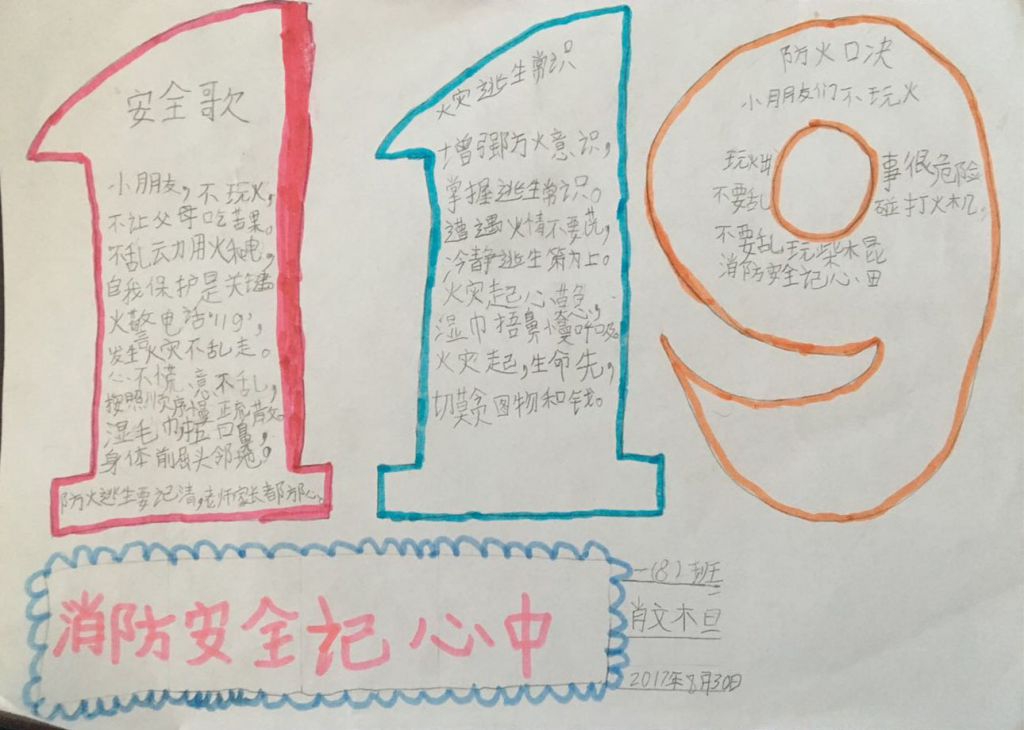 安全歌
小朋友，不玩火，
不让父母吃苦果。
不乱动用火和电，
自我保护是关键
火警电话“119”，
发生火灾不乱走。
心不慌，意不乱，
按照顺序慢疏散。
湿毛巾捂口鼻，
身体前屈头
防火逃生要记清，老师家长都放心。
火灾逃生常识
增强防火意识，
掌握逃生常识。
遭遇火情不要慌，
冷静逃生策为上。
火灾起，心莫急，
湿巾捂鼻慢呼吸。
火灾起，生命先，
切莫贪图物和钱。
防火口决
小朋友们不玩火
玩火 事很危险
不要乱碰打火机，
不要乱玩柴木棍
消防安全记心田
消防安全记心中
一（8）班
肖文木旦
2017年8月30日